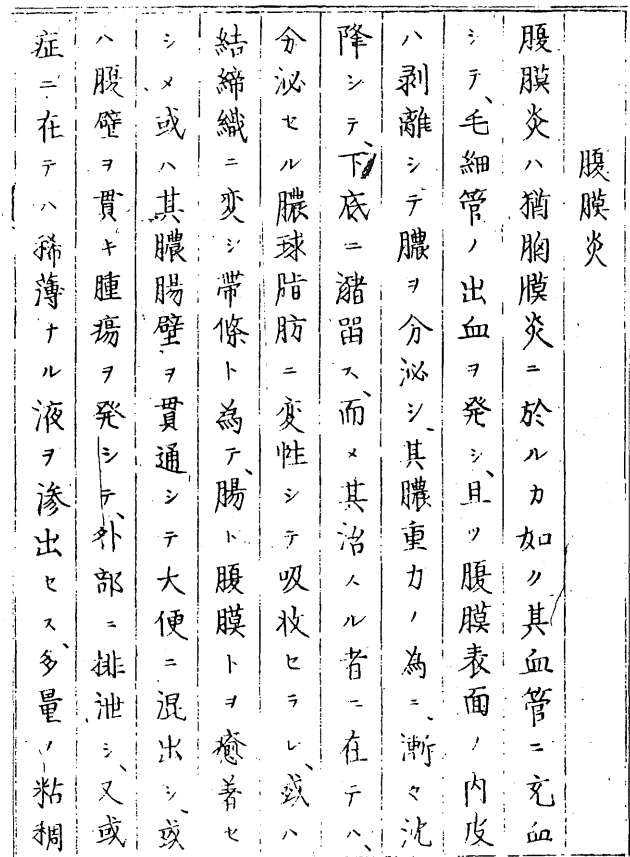 腹膜炎
腹膜炎ハ猶胸膜炎ニ於ルカ如ク其血管ニ充血
シテ、毛細管ノ出血ヲ発シ、且ツ腹膜表面ノ内皮
ハ剥離シテ膿ヲ分泌シ、其膿重力ノ為ニ、漸々沈
降シテ、下底ニ瀦留ス、而メ其治スル者ニ在テハ、
分泌セル膿球脂肪ニ変性シテ吸收セラレ、或ハ
結締織ニ変シ帯條ト為テ、腸ト腹膜トヲ癒著セ
シメ或ハ其膿腸壁ヲ貫通シテ大便ニ混出シ、或
ハ腹壁ヲ貫キ腫瘍ヲ発シテ、外部ニ排泄シ、又或
症ニ在テハ稀薄ナル液ヲ滲出セス、多量ノ粘稠